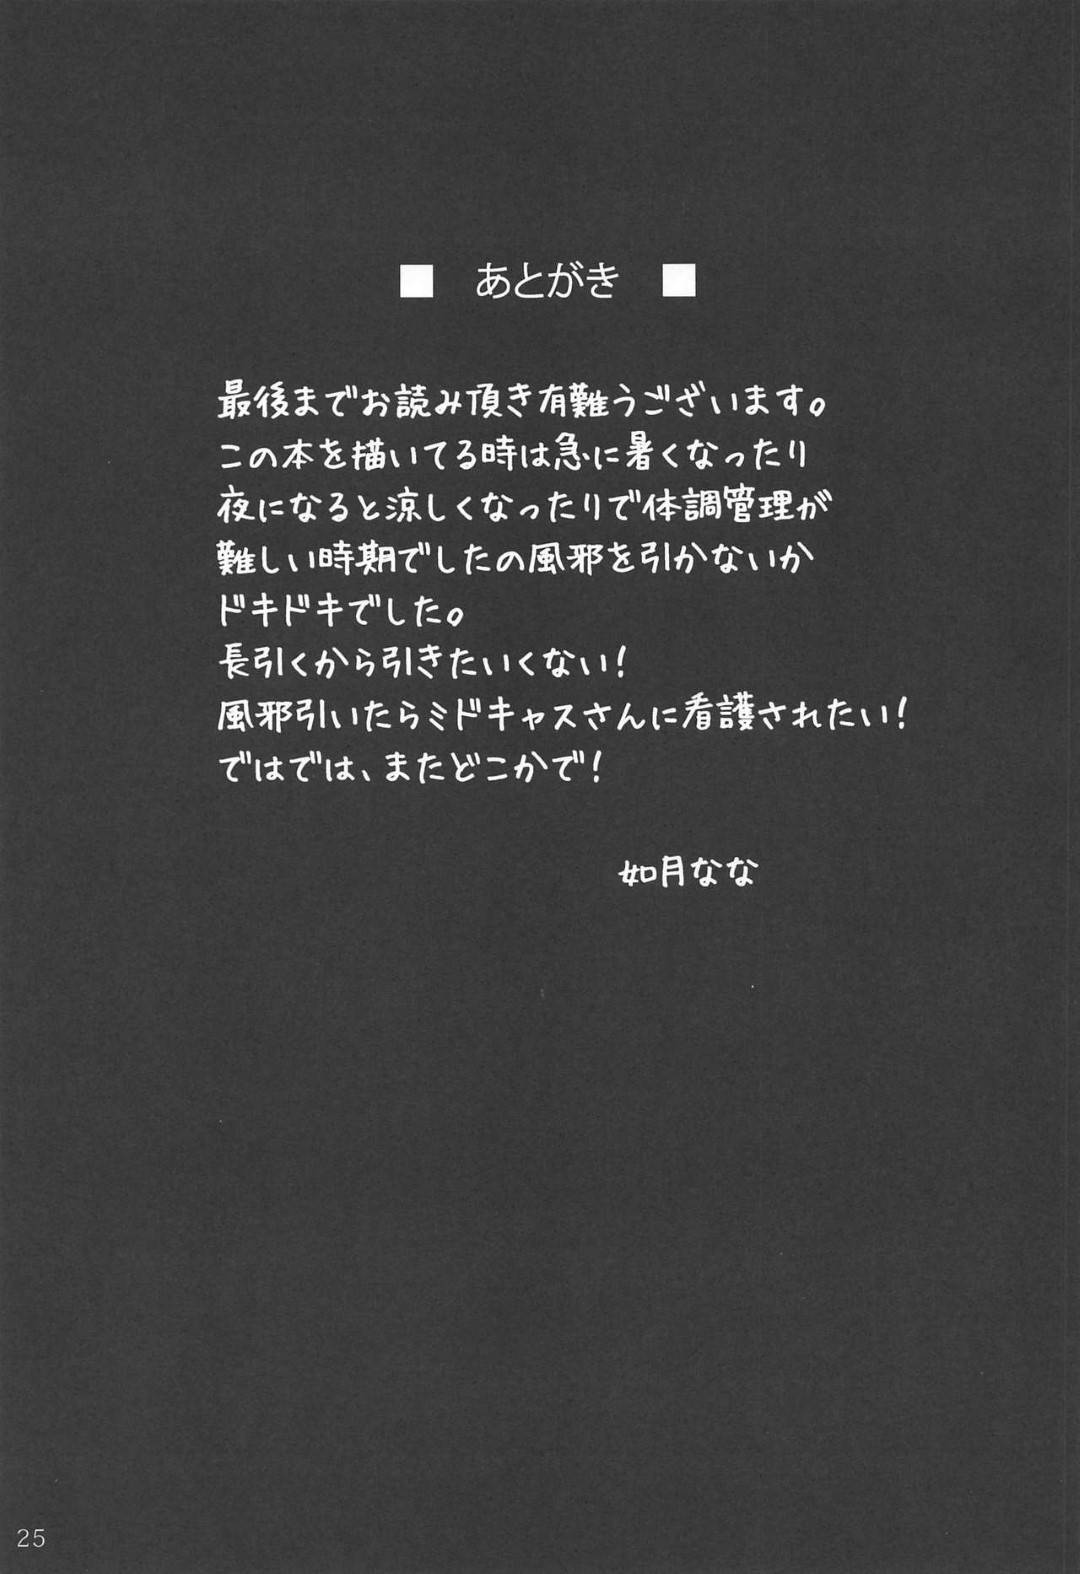 ■ あとがき ■
最後までお読み頂き有難うございます。
この本を描いてる時は急に暑くなったり
夜になると涼しくなったりで体調管理が
難しい時期でしたの風邪を引かないか
ドキドキでした。
長引くから引きたいくない！
風邪引いたらミドキャスさんに看護されたい！
ではでは、またどこかで！
如月なな
25